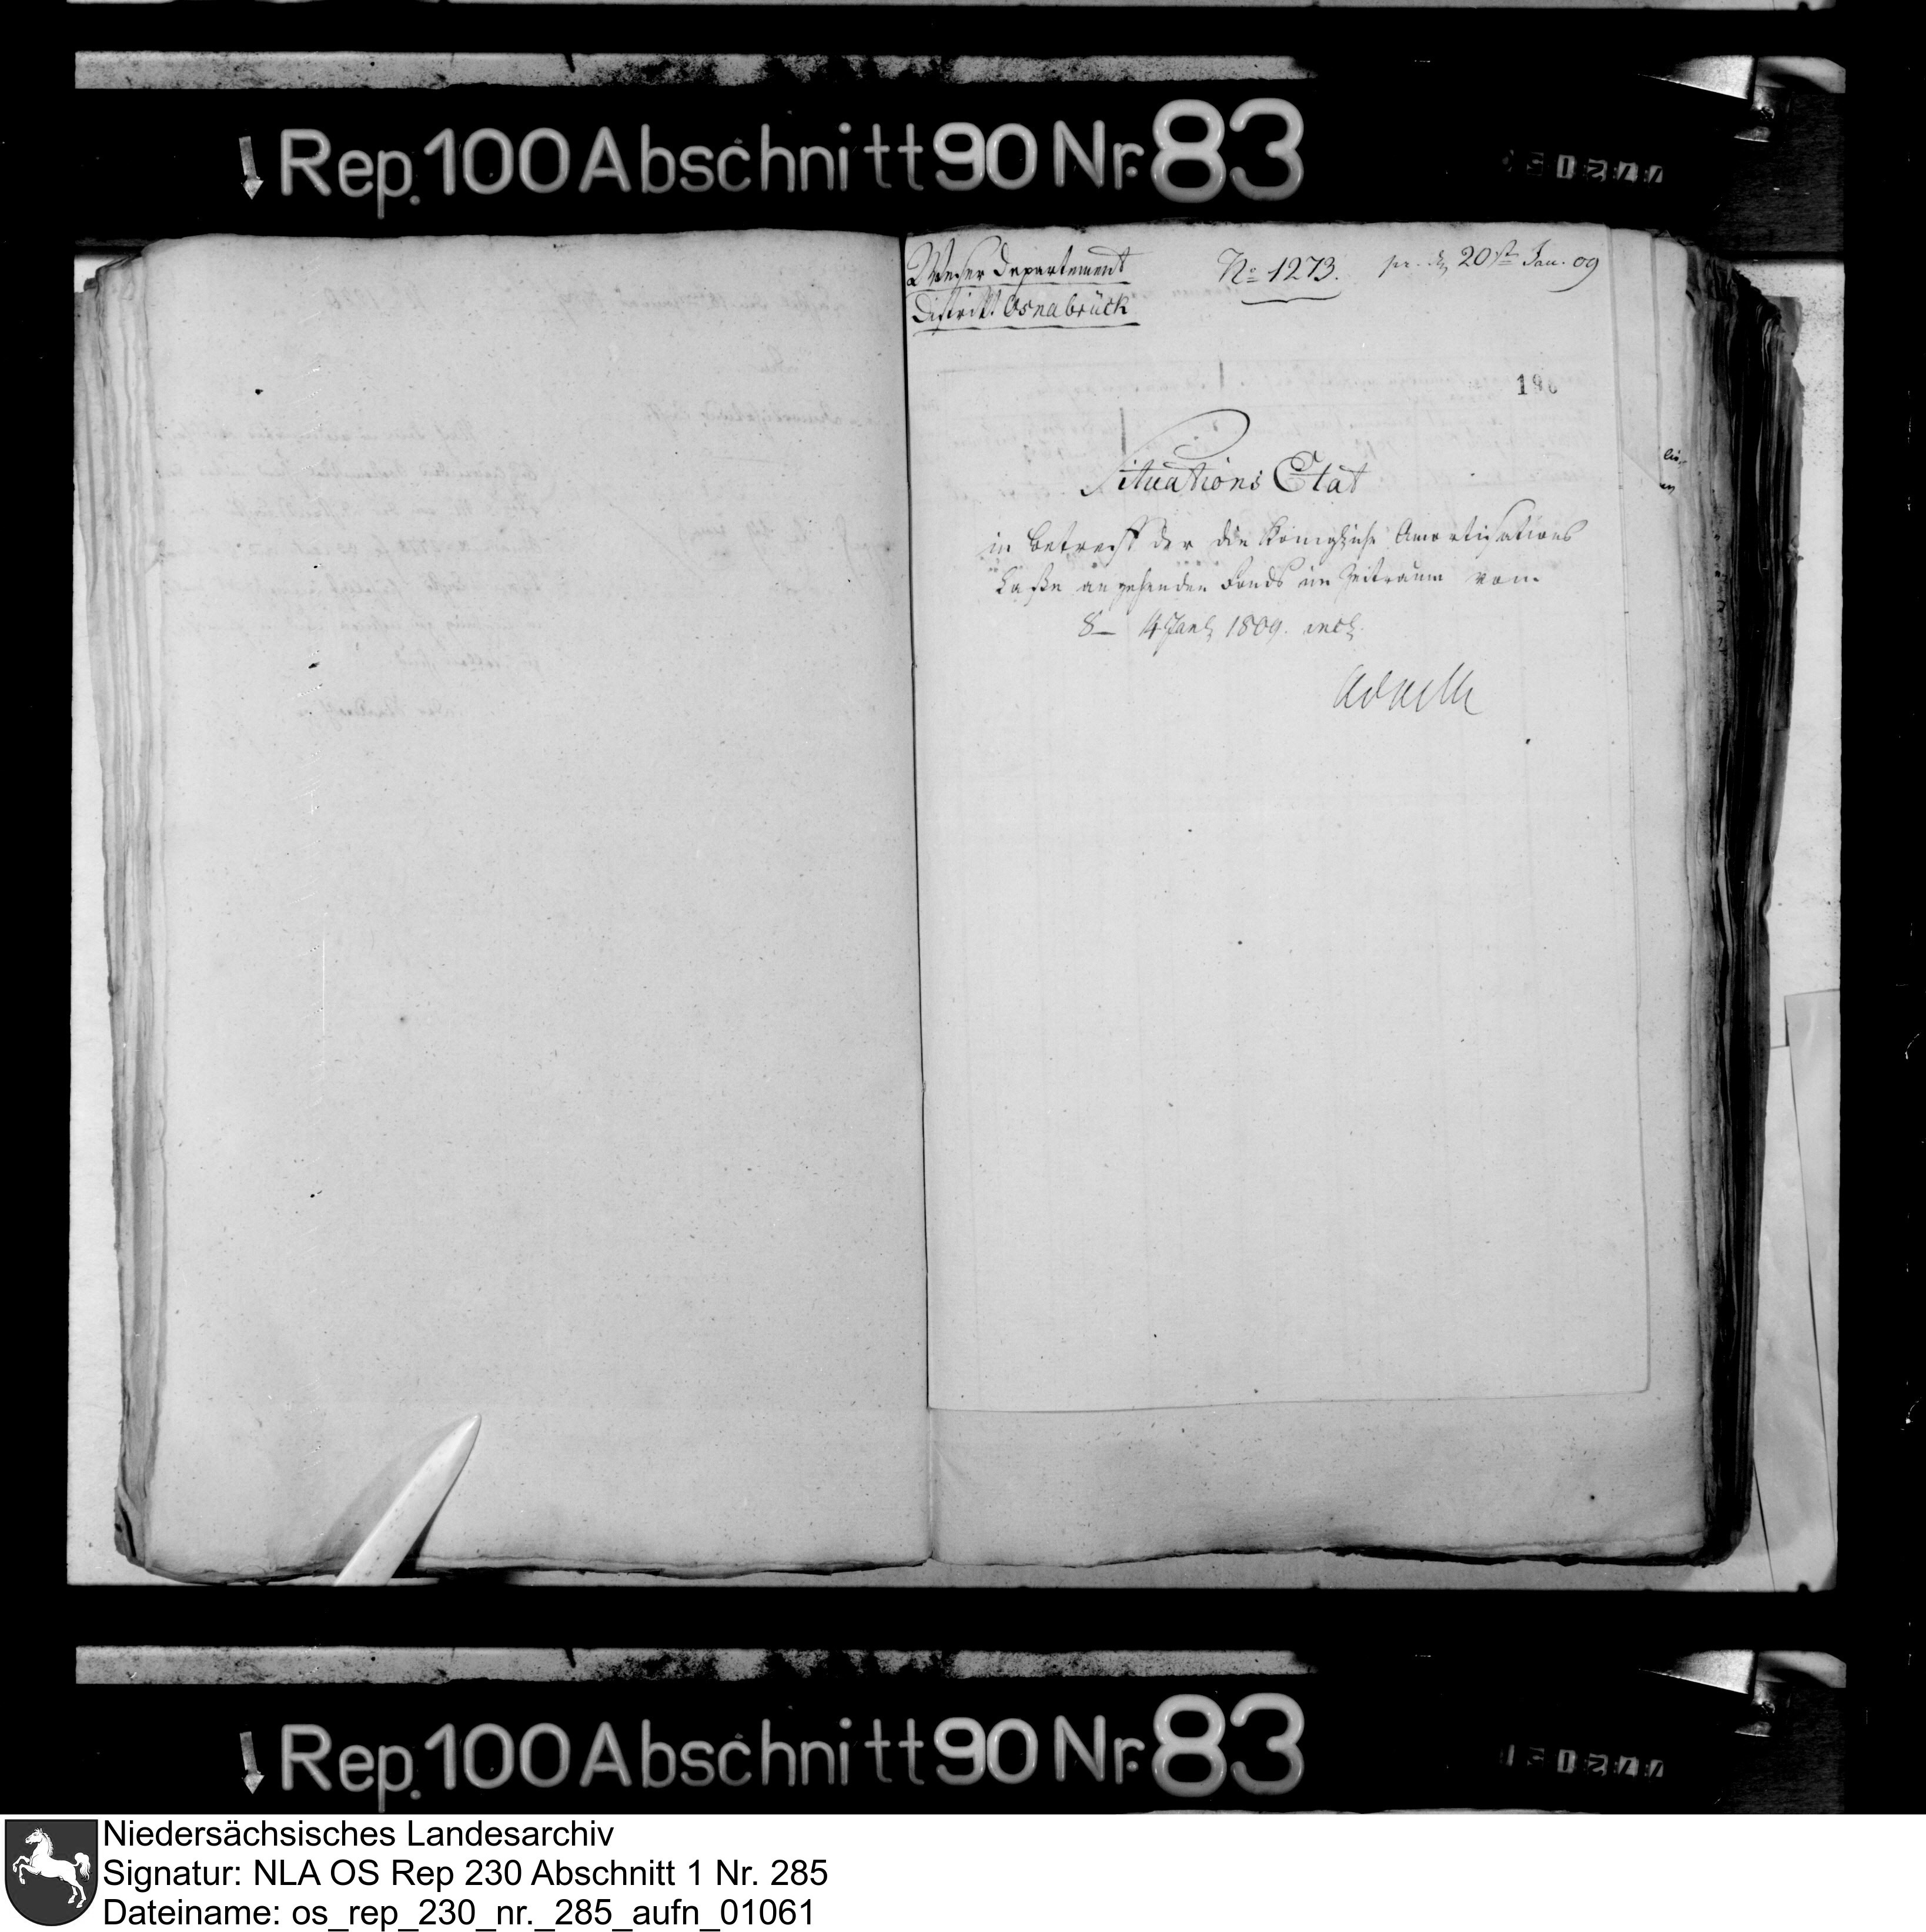 Rep. 100 Abschnitt 90 Nr. 83
Weser Departement
District Osnabrück
No 1273.
pr. d. 20st Jan. 09
Situations Etat
in betreff der die Königliche Amortisations
Casse angehenden Fonds im Zeitraum vom
8 – 14 Jan 1809. incl.
Rep. 100 Abschnitt 90 Nr. 83
Niedersächsisches Landesarchiv
Signatur: NLA OS Rep 230 Abschnitt 1 Nr. 285
Dateiname: os_rep_230_nr._285_aufn_01061